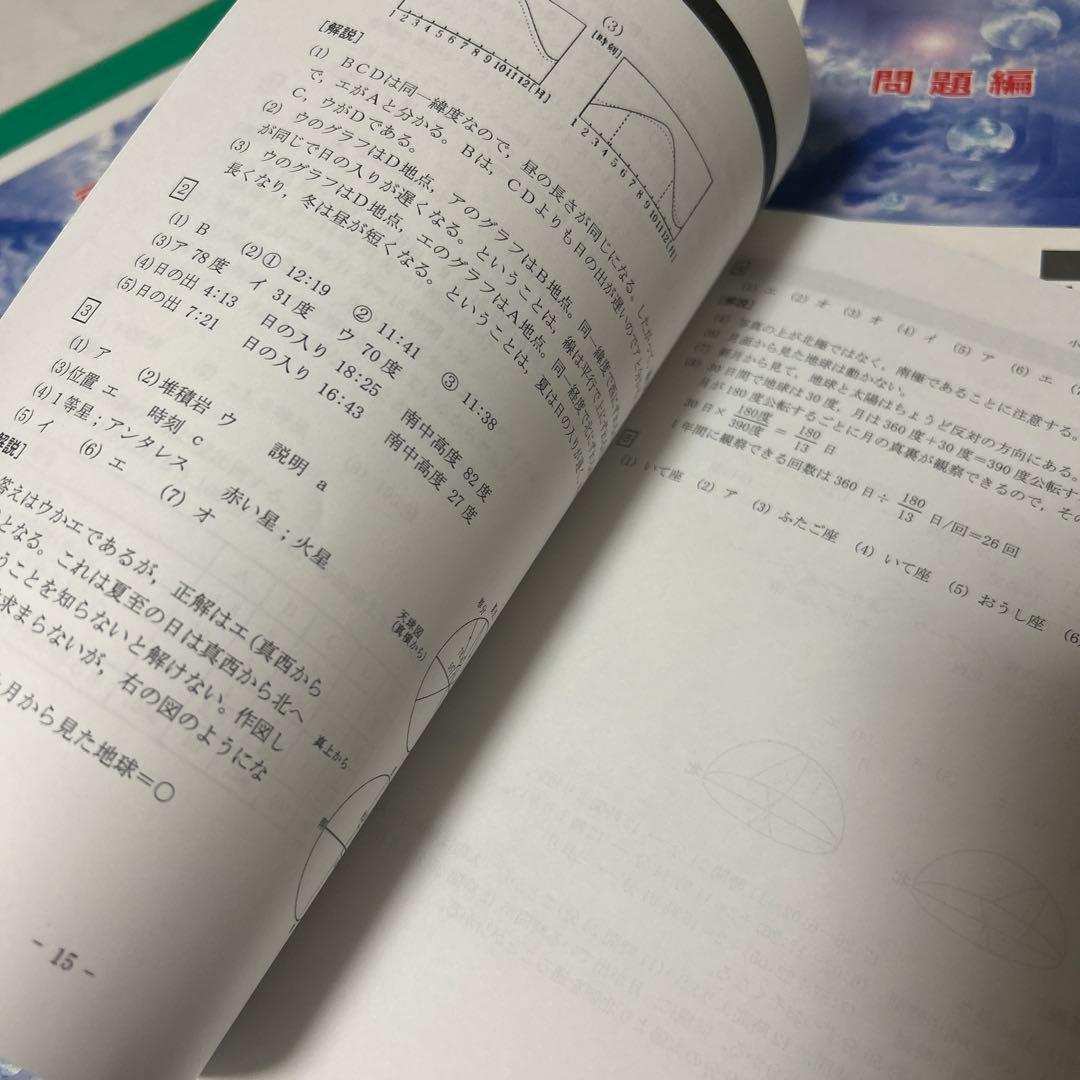 問題編
1 2 3 4 5 6 7 8 9 10 11 12[月]
(3)
[時刻]
1 2 3 4 5 6 7 8 9 10 11 12[月]
[解説]
(1) BCDは同一緯度なので，昼の長さが同じになる。したがっ
で，エがAと分かる。Bは，CDよりも日の出が遅いのでアと
C，ウがDである。
(2) ウのグラフはD地点，アのグラフはB地点。同一緯度で
が同じで日の入りが遅くなる。ということは，線は平行で上に
(3) ウのグラフはD地点，エのグラフはA地点。同一経度で北
長くなり，冬は昼が短くなる。ということは，夏は日の入りが
2
(1) B (2)① 12:19 ② 11:41 ③ 11:38
(3)ア 78度 イ 31度 ウ 70度
(4)日の出 4:13 日の入り 18:25 南中高度 82度
(5)日の出 7:21 日の入り 16:43 南中高度 27度
3
(1) ア (2)堆積岩 ウ
(3)位置 エ 時刻 c 説明 a
(4)1等星；アンタレス 赤い星；火星
(5) イ (6) エ (7) オ
解説]
答えはウかエであるが，正解はエ(真西から
となる。これは夏至の日は真西から北へ
うことを知らないと解けない。作図し
求まらないが，右の図のようにな
月から見た地球＝○
天球図
(真横から)
真上から
- 15 -
(1) エ (2) オ (3) オ (4) イ (5) ア (6) エ
[解説]
(4) 写真の上が北極ではなく，南極であることに注意する。
(6) 月面から見た地球は動かない。
(7) 新月から見て，地球と太陽はちょうど反対の方向にある。
(8) 30日間で地球は30度，月は360度＋30度＝390度公転す
月が180度公転するごとに月の真裏が観察できるので，その
30日×180度/390度＝180/13日
1年間に観察できる回数は360日÷180/13日/回＝26回
(1) いて座 (2) ア (3) ふたご座 (4) いて座 (5) おうし座 (6)